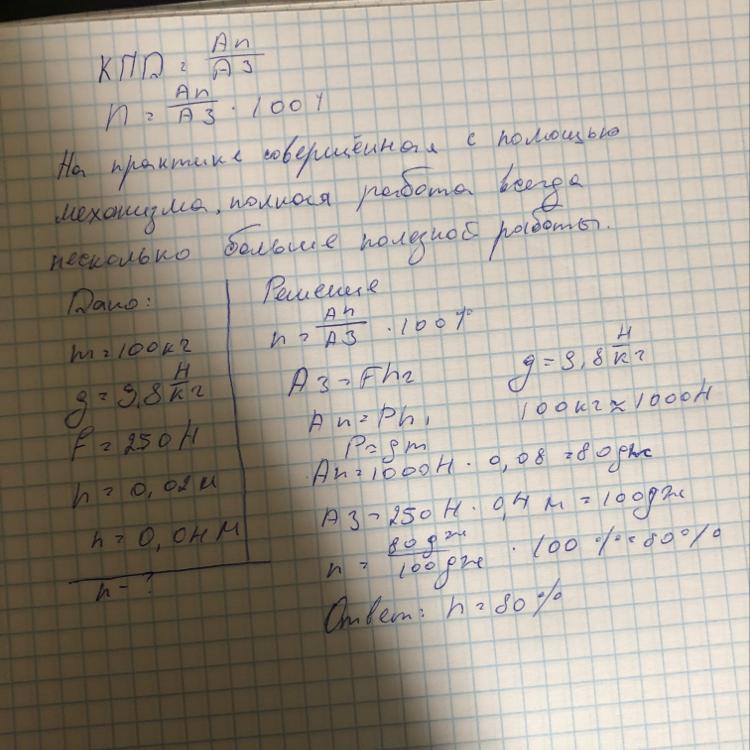 КПД = Ап/Аз
n = Ап/Аз · 100%
На практике совершённая с помощью
механизма, полная работа всегда
несколько больше полезной работы.
Дано:
m = 100кг
g = 9,8 Н/кг
F = 250Н
h = 0,02м
h = 0,04м
n - ?
Решение
n = Ап/Аз · 100%
Аз = Fh2
g = 9,8 Н/кг
Ап = Ph1
100кг ≈ 1000Н
P = gm
Ап = 1000Н · 0,08 = 80дж
Аз = 250Н · 0,4 м = 100дж
n = 80дж/100дж · 100% = 80%
Ответ: n = 80%